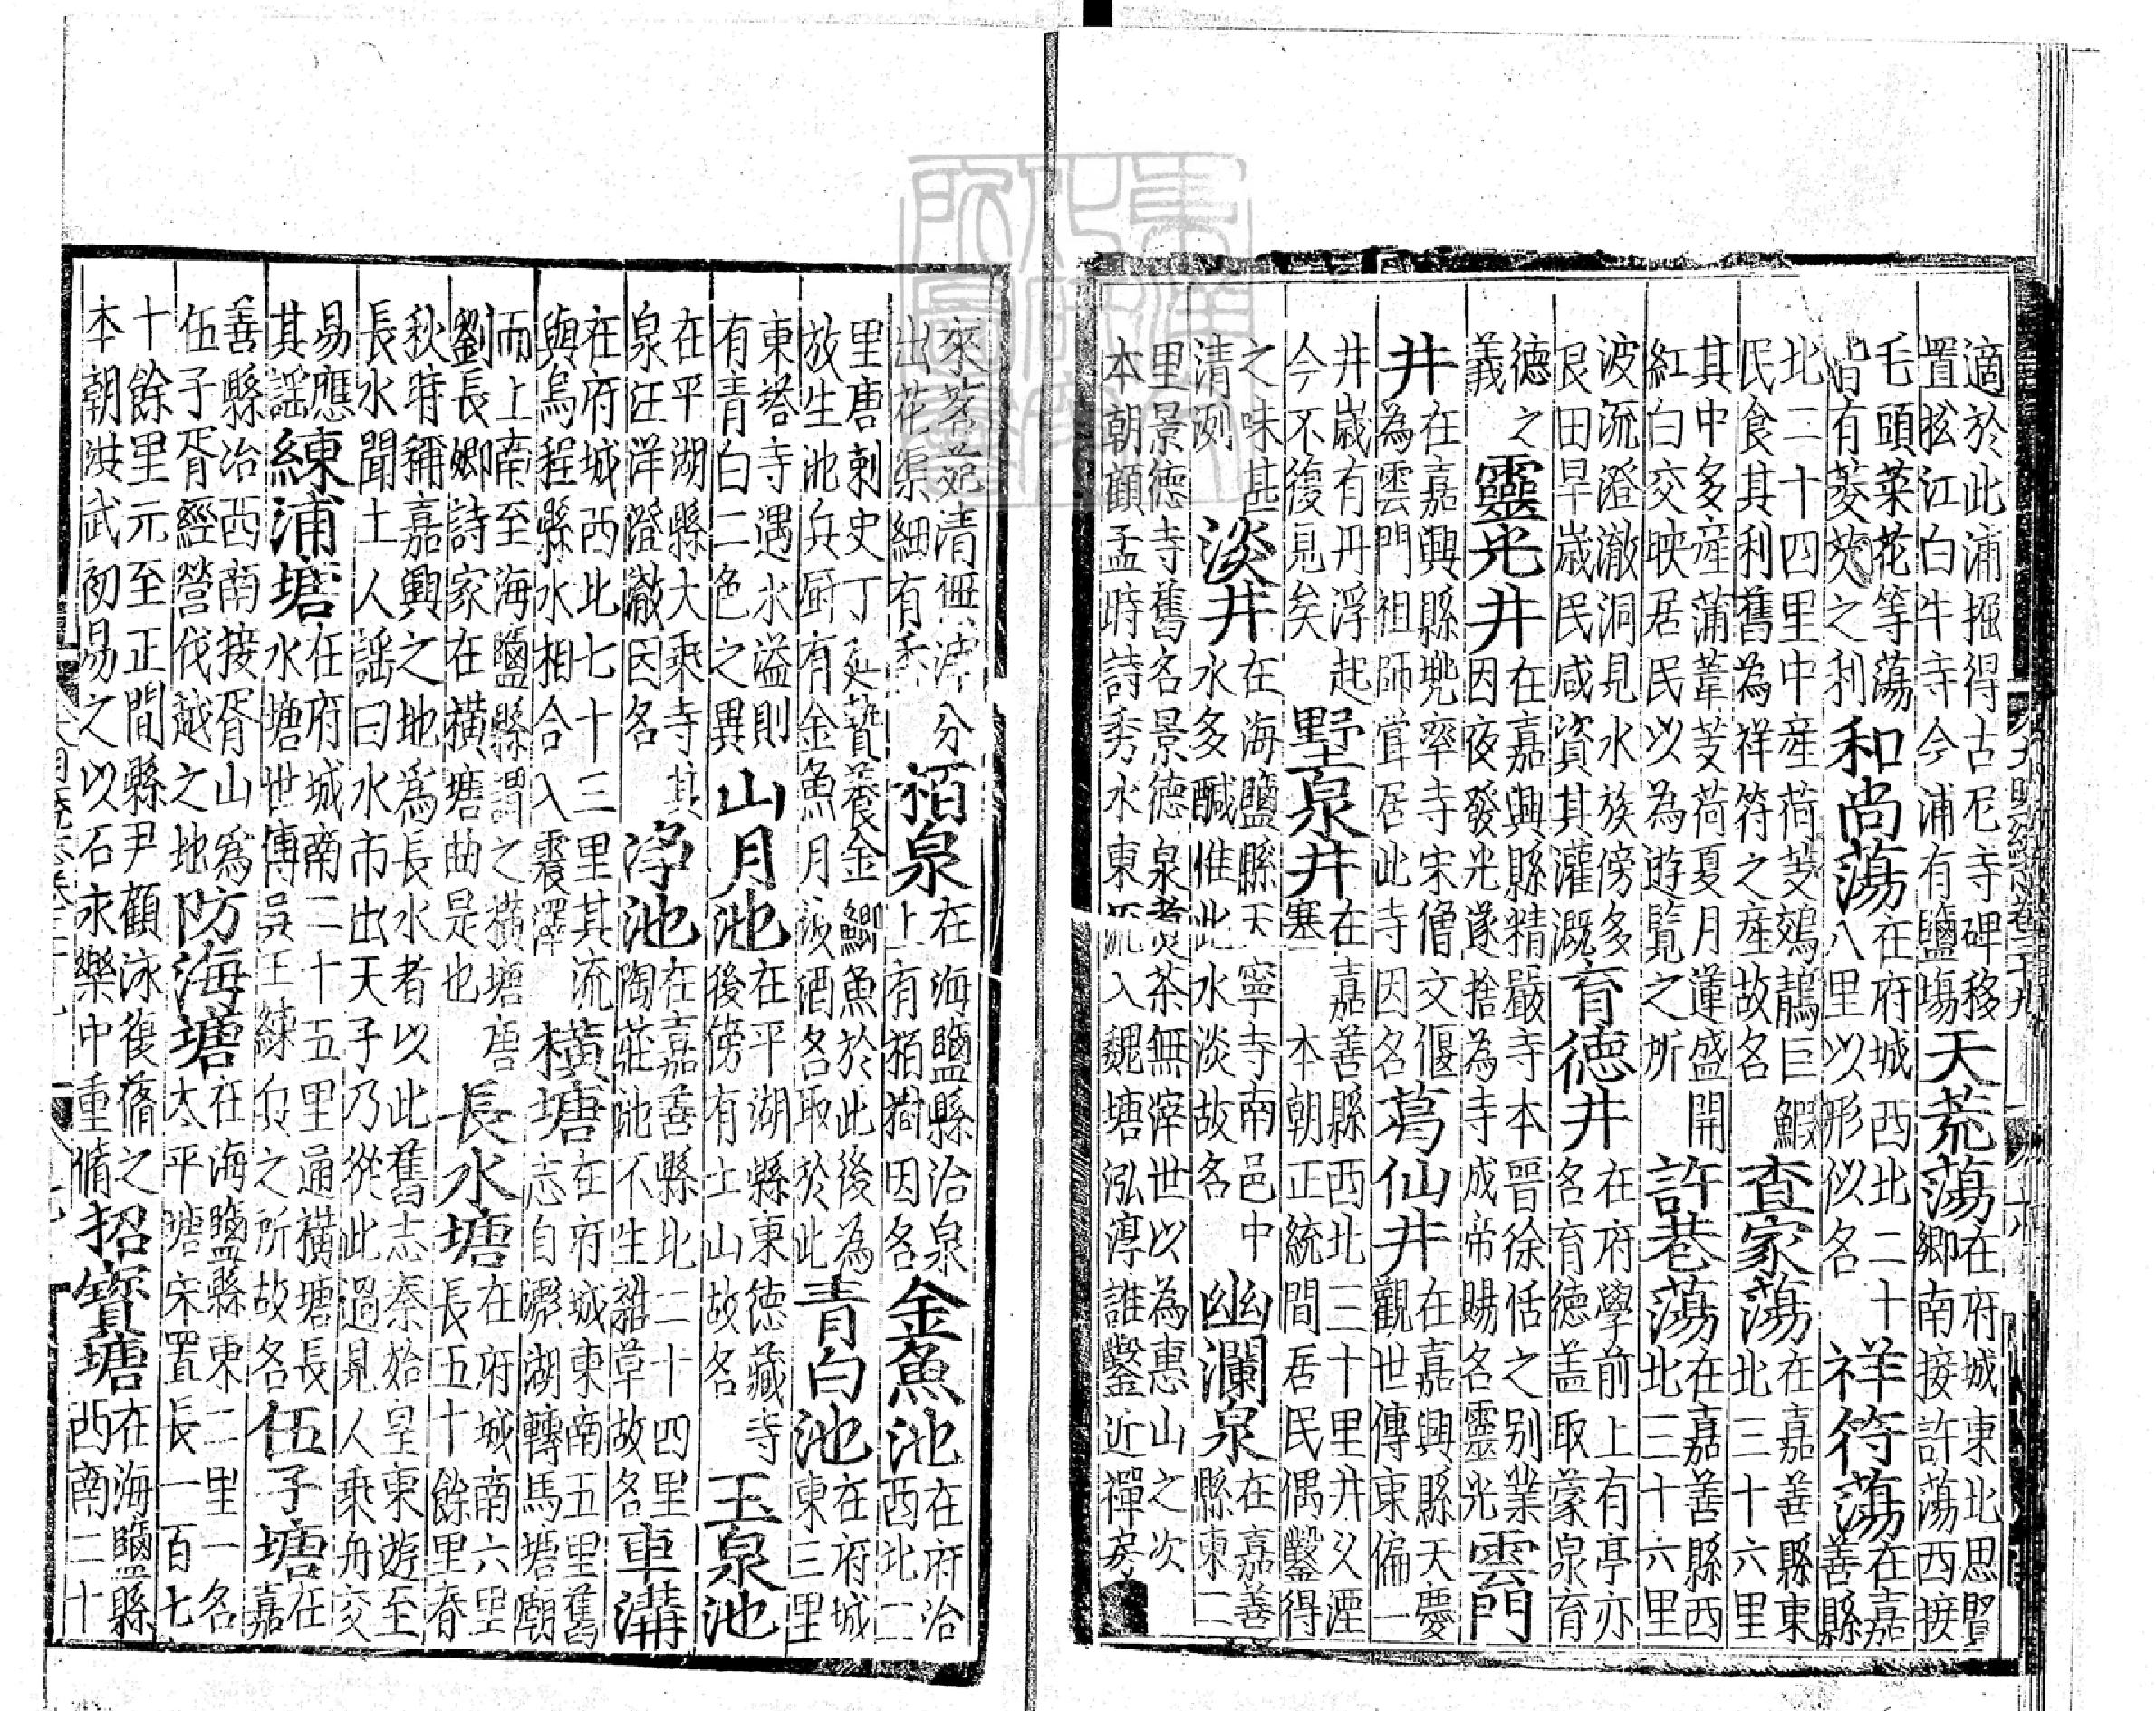 適於此浦掘得古尼寺碑移
置松江白牛寺今浦有鹽塲
天荒蕩
在府城東北思賢
鄉南接許蕩西接
毛頭菜花等蕩
皆有菱芡之利
和尚蕩
在府城西北二十
八里以形似名
祥符蕩
在嘉
善縣
北二十四里中産荷芰鵁鶄巨鰕
民食其利舊為祥符之産故名
查家蕩
在嘉善縣東
北三十六里
其中多産蒲葦芰荷夏月蓮盛開
紅白交映居民以為遊覽之所
許巷蕩
在嘉善縣西
北三十六里
波流澄澈洞見水族傍多
良田旱歳民咸資其灌溉
育德井
在府學前上有亭亦
名育德盖取蒙泉育
德之
義
靈光井
在嘉興縣精嚴寺本晉徐恬之别業
因夜發光遂捨為寺成帝賜名靈光
雲門
井
在嘉興縣兠率寺宋僧文偃
為雲門祖師甞居此寺因名
葛仙井
在嘉興縣天慶
觀世傳東偏一
井歳有丹浮起
今不復見矣
野泉井
在嘉善縣西北三十里井久湮
塞 本朝正統間居民偶鑿得
之味甚
清冽
淡井
在海鹽縣天寧寺南邑中
水多醎惟此水淡故名
幽瀾泉
在嘉善
縣東二
里景德寺舊名景德泉煑茶無滓世以為惠山之次
本朝顧孟時詩秀水東流入魏塘泓渟誰鑿近禪房
來茗
清無滓分
出花
細有香
栢泉
在海鹽縣治泉
上有栢樹因名
金魚池
在府治
西北二
里唐刺史丁延贊養金鯽魚於此後為
放生池兵厨有金魚月波酒名取於此
青白池
在府城
東三里
東塔寺遇水溢則
有青白二色之異
山月池
在平湖縣東德藏寺
後傍有土山故名
玉泉池
在平湖縣大乘寺其
泉汪洋澄澈因名
淨池
在嘉善縣北二十四里
陶莊池不生雜草故名
車溝
在府城西北七十三里其流
與烏程縣水相合入震澤
橫塘
在府城東南五里舊
志自㶟湖轉馬塘廟
而上南至海鹽縣謂之橫塘唐
劉長卿詩家在橫塘曲是也
長水塘
在府城南六里
長五十餘里春
秋時稱嘉興之地為長水者以此舊志秦始皇東遊至
長水聞土人謡曰水市出天子乃從此過見人乘舟交
易應
其謡
練浦塘
在府城南二十五里通橫塘長
水塘世傳吳王練兵之所故名
伍子塘
在
嘉
善縣治西南接胥山為
伍子胥經營伐越之地
防海塘
在海鹽縣東二里一名
太平塘宋置長一百七
十餘里元至正間縣尹顧泳復脩之
本朝洪武初易之以石永樂中重脩
招寳塘
在海鹽縣
西南二十